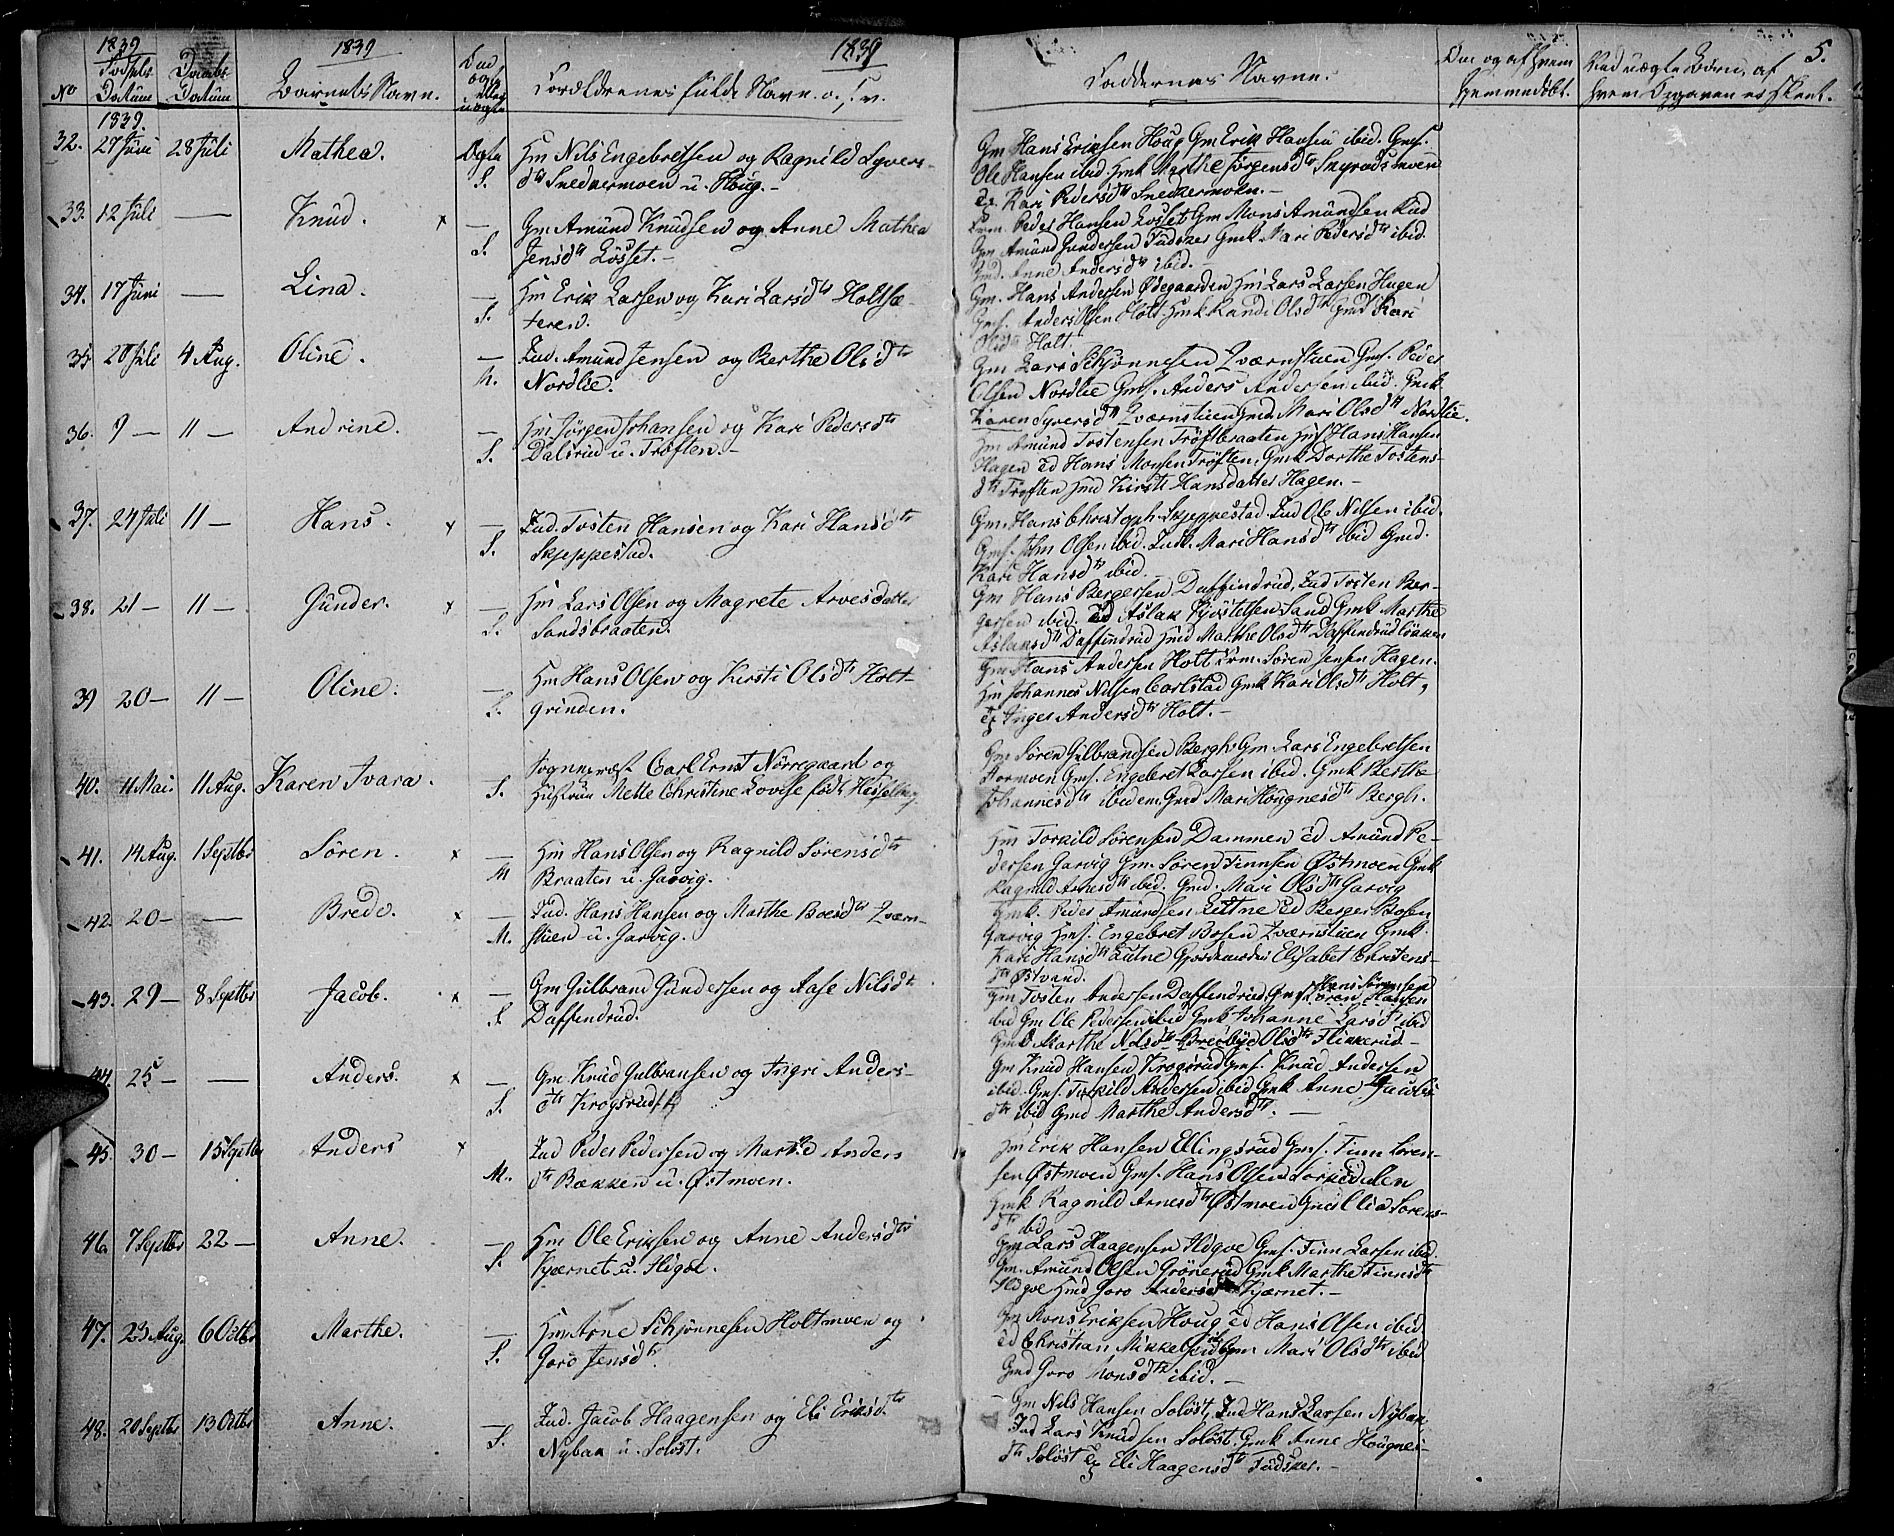 1839 1839 1839 5.
No Fødsels Datum Daabs Datum Barnets Navn. Om ægte eller uægte Forældrenes fulde Navne o.s.v. Faddernes Navne. Om og af hvem hjemmedøbt. Ved uægte Børn, af hvem Opgaven er skeet.
1839.
32. 27 Juni 28 Juli Mathea. Ægte Hm Nils Engebretsen og Ragnild Syvers-
S. dtr Snedkermoen u. Houg.
Gm Hans Eriksen Houg Gm Erik Hansen ibid. Gms.
Ole Hansen ibid Hmk Marthe Jørgensdtr
Kari Pedersdtr Snedkermoen.
33. 12 Juli — Knud. x — Gm Amund Knudsen og Anne Mathea
S. Jensdtr Løsset.
Peder Hansen Løsset Gm Mons Amundsen Rud
Gm Amund Gundersen Gmk Mari Pedersdtr ibid.
Gmd. Anne Andersdtr ibid.
34. 17 Juni — Lina. — Hm Erik Larsen og Kari Larsdtr Holtsæ-
S. teren.
Gm. Hans Andersen Ødegaarden Hm Lars Larsen Hagen
Gms. Anders Olsen Holt Hmk Randi Olsdtr Gmd Kari
Olsdtr Holt
35 28 Juli 4 Aug. Oline. — Ind. Amund Jensen og Berthe Olsdtr
M. Nordlie.
Gm Lars Schjønnesen Qværnstuen Gms. Peder
Olsen Nordlie Gms. Anders Andersen ibid. Gmk
Karen Syversdtr Qværnstuen Gmd. Mari Olsdtr Nordlie.
36. 9 — 11 — Andrine. — Hm Jørgen Johansen og Kari Pedersdtr
S. Dalsrud u. Trøften.
Hm Amund Tostensen Trøftbraaten Hms Hans Hansen
Hagen Ed Hans Monsen Trøften, Gmk Dorthe Tostens-
dtr Trøften Hmd Kirsti Hansdatter Hagen.
37. 24 Juli 11 — Hans. x — Ind. Tosten Hansen og Kari Hansdtr
S. Skjeppestad.
Gm. Hans Christoph. Skjeppestad. Ind Ole Nilsen ibid.
Gms. John Olsen ibid. Indk. Mari Hansdtr ibid Gmd.
Kari Hansdtr ibid.
38. 21 — 11 — Gunder. x — Hm Lars Olsen og Magrete Arvesdatter
S. Sandsbraaten.
Gm Hans Bergersen Daffindrud, Ind Tosten Ber-
gersen ibid. Ed Aslak Kjøstelsen Sand Gmk Marthe
Aslaksdtr Daffindrud Hmd Marthe Olsdtr Daffindrudløkken
39 20 — 11 — Oline. — Hm Hans Olsen og Kirsti Olsdtr Holt-
S. grinden.
Gm. Hans Andersen Holt Søren Jensen Hagen.
Hm Johannes Nilsen Carlstad Gmk Kari Olsdtr Holt,
Inger Andersdtr Holt.
40. 11 Mai 11 Aug. Karen Tvara. Sognepræst Carl Ernst Nørregaard og
S. Hustrue Mette Christine Lovise født Hesselberg
Gm Søren Gulbrandsen Bergh Gm. Lars Engebretsen
Stormoen Gms. Engebret Larsen ibid. Gmk Berthe
Johannesdtr ibidem Gmd Mari Hougnesdtr Bergh.
41. 14 Aug. 1 Septbr Søren. x — Hm Hans Olsen og Ragnild Sørensdtr
M Braaten u. Garvig.
Hm Torkild Sørensen Dammen Ed Amund Pe-
dersen Garvig Gm. Søren Finnsen Østmoen Gmk
Ragnild Arnesdtr ibid. Gmd. Mari Olsdtr Garvig
42. 20 — — Brede. x — Ind. Hans Hansen og Marthe Boesdtr Qværn-
M. stuen u. Garvig.
Gmk. Peder Amundsen Ed Berger Bosen
Garvig Hms. Engebret Bosen Qværnstuen Gmk
Kari Hansdtr Elisabet Christens-
dtr Østvand.
43. 29 — 8 Septbr Jacob. x — Gm Gulbrand Gundersen og Aase Nilsdtr
S. Daffindrud.
Gm Tosten Andersen Daffindrud Gms Hans Sørensen
ibid Gm Ole Pedersen ibid Gmk Johanne Larsdtr ibid
Gmd Marthe Nilsdtr Olsdtr Flikkerud
44. 25 — — Anders. x — Gm Knud Gulbransen og Ingri Anders-
S. dtr Krogsrud
Gm Knud Hansen Krogsrud Gms. Knud Andersen
ibid. Gms. Torkild Andersen ibid Gmk Anne Jacobs
dtr ibid Gmd Marthe Andersdtr.
45. 30 — 15 Septbr Anders x — Ind Peder Pedersen og Marthe Anders
M. dtr Bækken u. Østmoen.
Hm Erik Hansen Ellingsrud Gms. Finn Søren-
sen Østmoen Gms. Hans Olsen
Gmk Ragnild Arnesdtr Østmoen Gmd Elia Sørens-
dtr ibid
46. 7 Septbr 22 — Anne. — Hm Ole Eriksen og Anne Andersdtr
S. Kjærnet u. Higde.
Gm Lars Haagensen Gms. Finn Larsen ibid.
Gm. Amund Olsen Grønerud Gmk Marthe Finnsdtr
Hmd Goro Andersdtr Kjærnet.
47. 23 Aug. 6 Octbr Marthe. — Hm Arne Schjønnesen Holtmoen og
S. Goro Jensdtr.
Gm Mons Eriksen Houg Ed Hans Olsen ibid
Ed Christian Mikkelsen Gm Mari Olsdtr ibid
Gmd Goro Monsdtr ibid.
48. 20 Septbr 13 Octbr Anne. — Ind. Jacob Haagensen og Eli Eriksdtr
S. Nybak u. Soløst.
Gm Nils Hansen Soløst, Ind Hans Larsen Nybak,
Ind Lars Knudsen Soløst. Gmk Anne Hougnes-
dtr Soløst Eli Haagensdtr